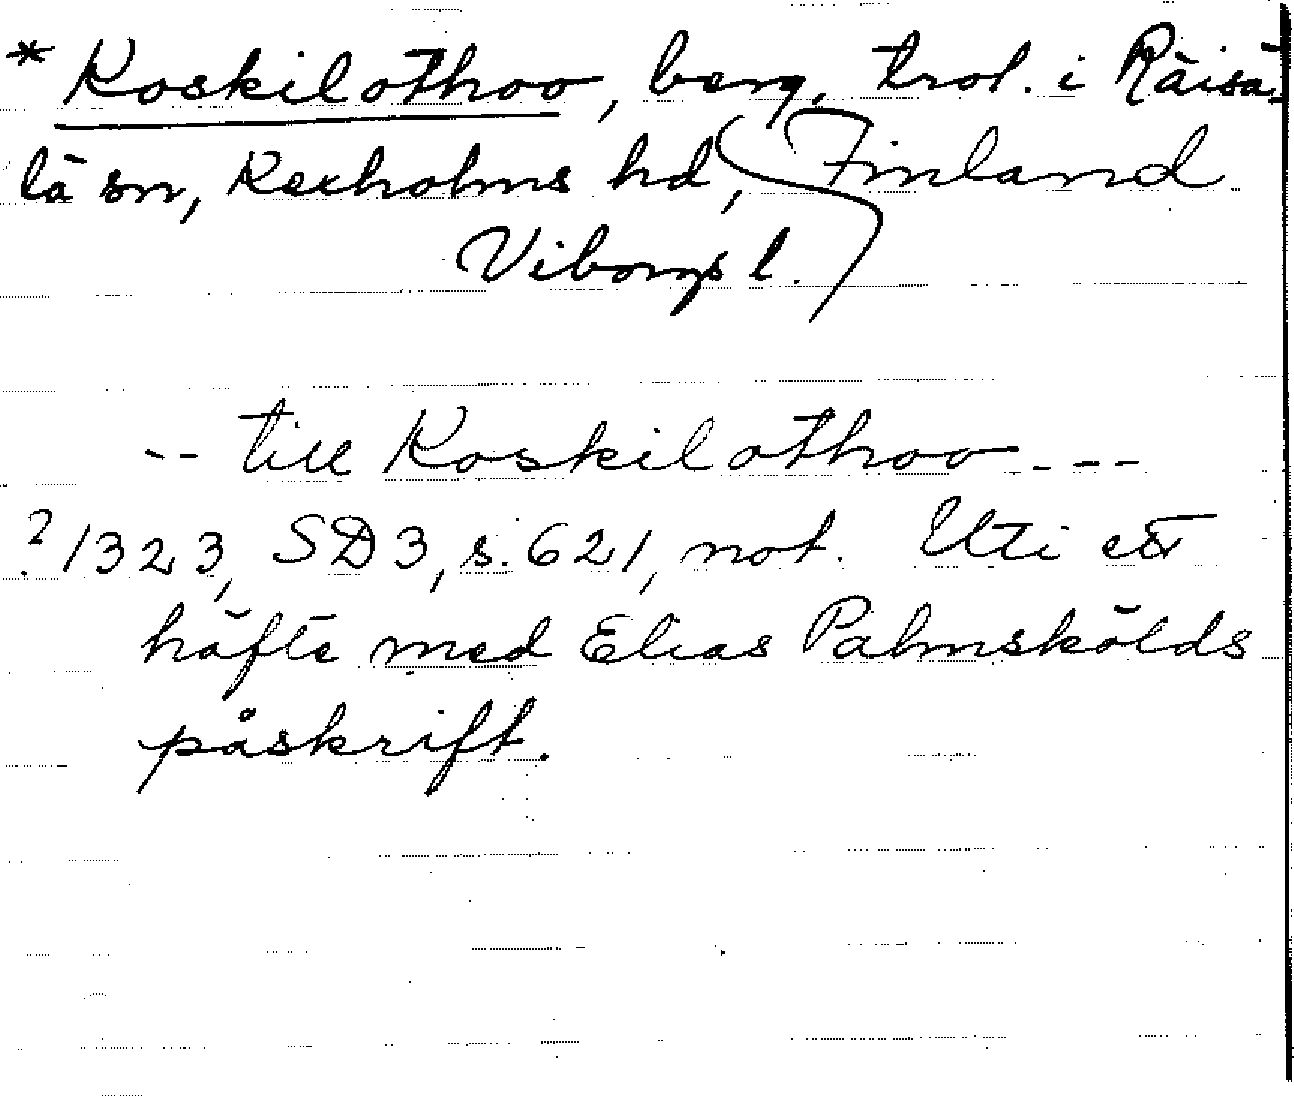 * Koskilothoo, berg, trol. i Räisä-
lä sn, Kexholms hd, Finland
Viborgs l.
-- till Koskilothoo ---
? 1323, SD 3, s. 621, not. Uti ett
häfte med Elias Palmskölds
påskrift.